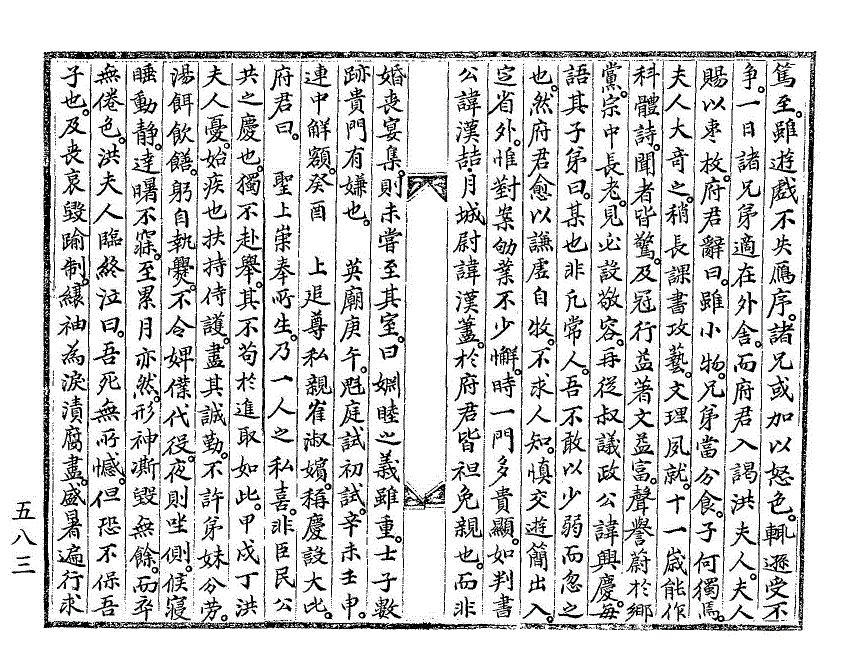 篤至。雖遊戲不失鴈序。諸兄或加以怒色。輒遜受不
爭。一日諸兄弟適在外舍。而府君入謁洪夫人。夫人
賜以棗枚。府君辭曰。雖小物。兄弟當分食。子何獨焉。
夫人大奇之。稍長課書攻藝。文理夙就。十一歲能作
科體詩。聞者皆驚。及冠行益著文益富。聲譽蔚於鄕
黨。宗中長老。見必設敬容。再從叔議政公諱興慶。每
語其子弟曰。某也非凡常人。吾不敢以少弱而忽之
也。然府君愈以謙虛自牧。不求人知。愼交遊簡出入。
定省外。惟對案劬業不少懈。時一門多貴顯。如判書
公諱漢喆。月城尉諱漢藎。於府君皆袒免親也。而非
婚喪宴集。則未嘗至其室。曰婣睦之義雖重。士子數
跡貴門有嫌也。 英廟庚午。魁庭試初試。辛未壬申。
連中解額。癸酉 上追尊私親崔淑嬪。稱慶設大比。
府君曰。 聖上崇奉所生。乃一人之私喜。非臣民公
共之慶也。獨不赴擧。其不苟於進取如此。甲戌丁洪
夫人憂。始疾也扶持侍護。盡其誠勤。不許弟妹分勞。
湯餌飮饍。躬自執爨。不令婢僕代役。夜則坐側。候寢
睡動靜。達曙不寐。至累月亦然。形神凘毁無餘。而卒
無倦色。洪夫人臨終泣曰。吾死無所憾。但恐不保吾
子也。及喪哀毁踰制。纕袖為淚漬腐盡。盛暑遍行求
五八三